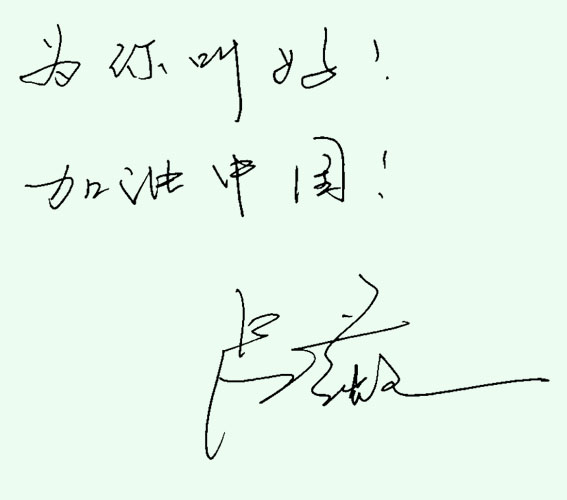 为你叫好！
加油中国！
卢